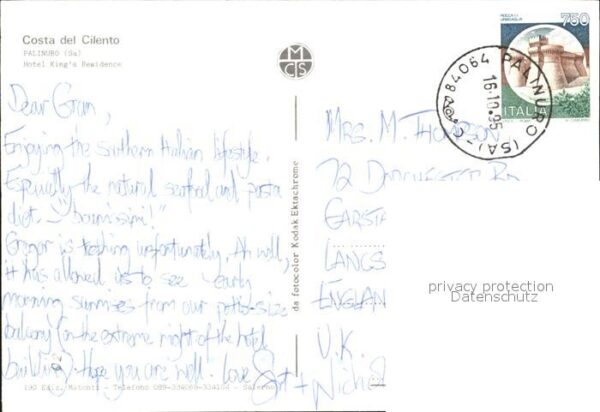 Costa del Cilento
PALINURO (Sa)
Hotel King's Residence
MCS
ROCCA DI URBISAGLIA
750
ITALIA
84064 PALINURO (SA)
16.10.95
Dear Gran,
Enjoying the southern Italian lifestyle.
Especially the natural seafood and pasta
diet - "buonissimi!"
Gregor is teething unfortunately. Ah well,
it has allowed us to see early
morning sunrises from our petit-size
balcony (on the extreme right of the hotel
building). Hope you are well. Love
+ Nichol
da fotocolor Kodak Ektachrome
MRS. M. THOMPSON
72 DORCHESTER RD
GARSTA
LANCS
ENGLAN
U.K.
privacy protection
Datenschutz
190 Ediz. Matonti - Telefono 089-334065-334104 - Salerno